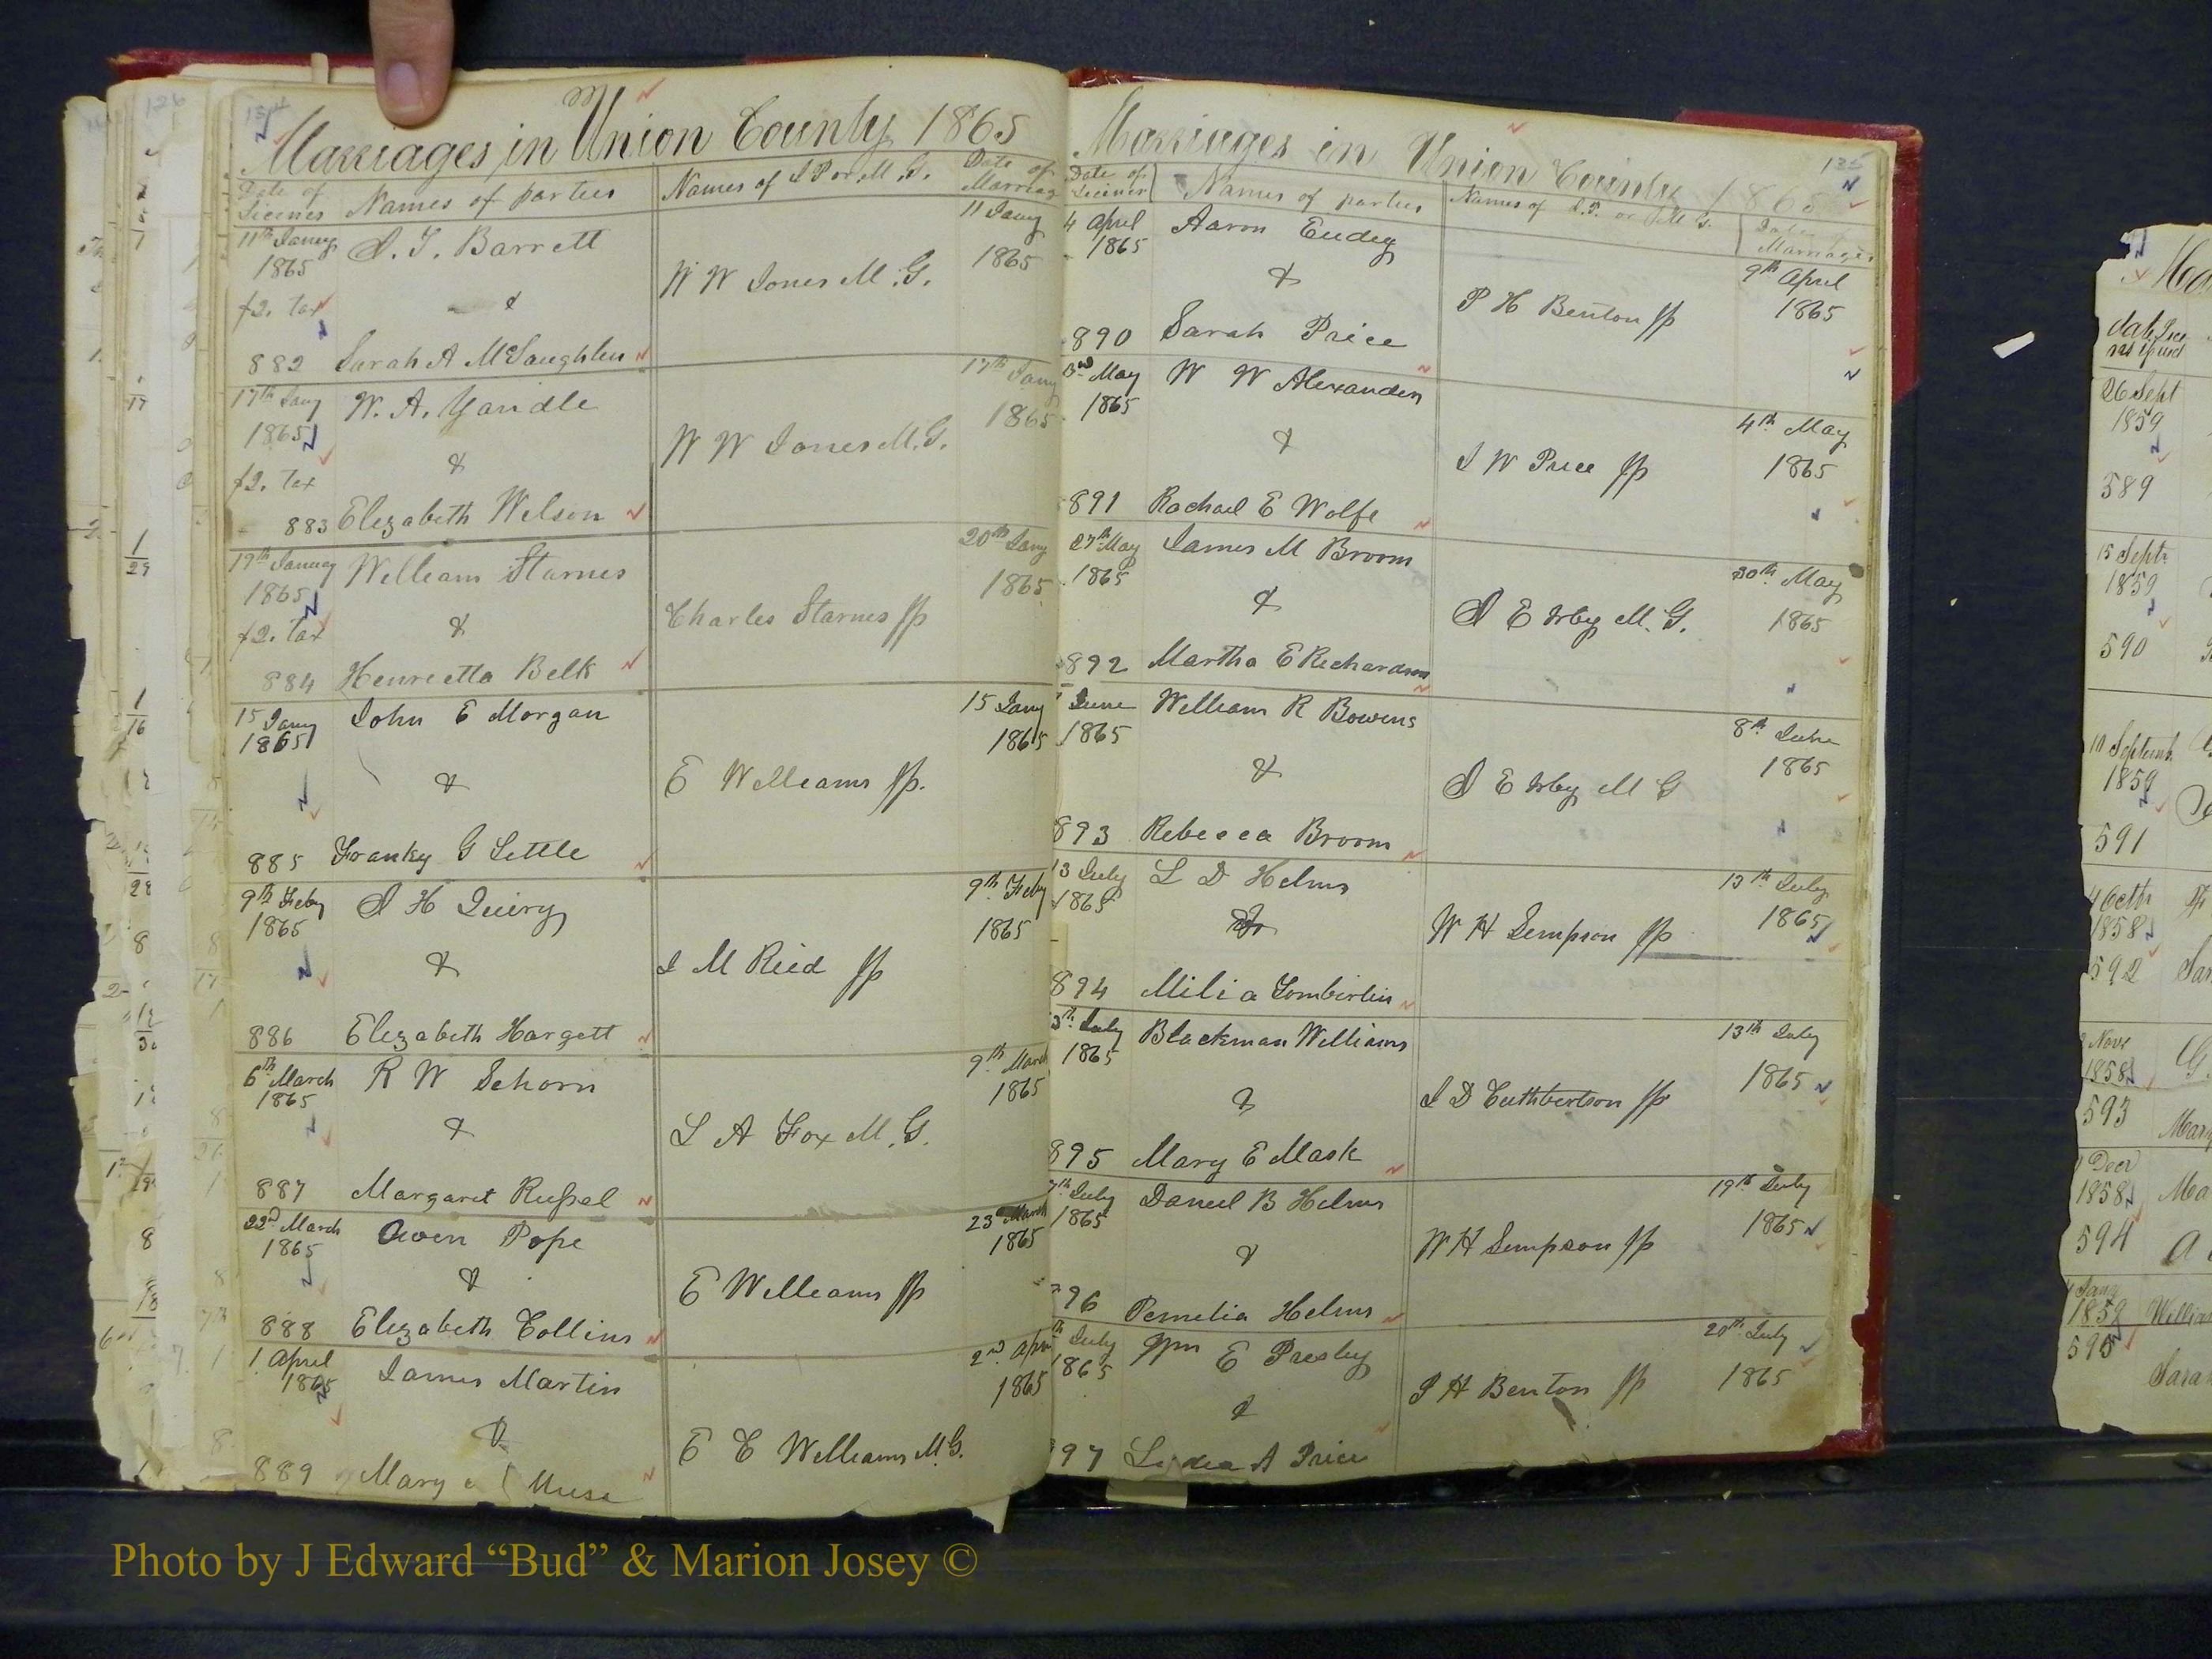 134
Marriages in Union County 1865
Date of Licenes
Names of parties
Names of J P or M. G.
Date of Marriag
11th Jany 1865
S. T. Barrett
&
$2. tax
882 Sarah A McLaughlin
W W Jones M. G.
11 Jany 1865
17th Jany 1865
W. A. Yandle
&
$2. tax
883 Elizabeth Wilson
W W Jones M. G.
17th Jany 1865
19th January 1865
William Starnes
&
$2. tax
884 Henrietta Belk
Charles Starnes Jp
20th Jany 1865
15 Jany 1865
John E Morgan
&
885 Franky G Little
E Williams Jp.
15 Jany 1865
9th Feby 1865
S H Quiry
&
886 Elizabeth Hargett
J M Reid Jp
9th Feby 1865
6th March 1865
R W Schorn
&
887 Margaret Russel
L A Fox M. G.
9th March 1865
22nd March 1865
Owen Pope
&
888 Elizabeth Collins
E Williams Jp
23 March 1865
1 April 1865
James Martin
&
889 Mary Muse
E C Williams M. G.
2nd Apr 1865
135
Marriages in Union County 1865
Date of License
Names of parties
Names of J. P. or M. G.
Date of Marriages
4 April 1865
Aaron Eudy
&
890 Sarah Price
P H Benton Jp
9th April 1865
3rd May 1865
W W Alexander
&
891 Rachael E Wolfe
J W Price Jp
4th May 1865
27th May 1865
James M Broom
&
892 Martha E Richardson
S E Irby M. G.
30th May 1865
June 1865
William R Bowens
&
893 Rebecca Broom
S E Irby M G
8th June 1865
13 July 1865
L D Helms
&
894 Milia Yomberlin
W H Simpson Jp
13th July 1865
13th July 1865
Blackman Williams
&
895 Mary E Mask
J D Cuthbertson Jp
13th July 1865
July 1865
Daniel B Helms
&
96 Pemelia Helms
W H Simpson Jp
19th July 1865
July 1865
Wm E Presley
&
97 Lydia A Price
P H Benton Jp
20th July 1865
date Lice
26 Sept 1859
589
15 Septr 1859
590
1859
591
4 Octr 1858
592
Nove 1858
593
Decr 1858
594
Jany
1859
595
Photo by J Edward “Bud” & Marion Josey ©